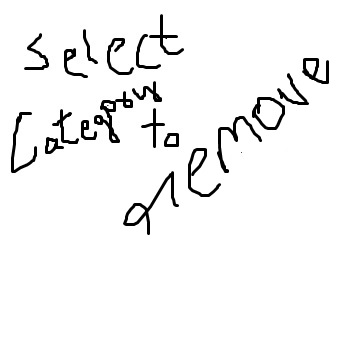 select
Category to
remove